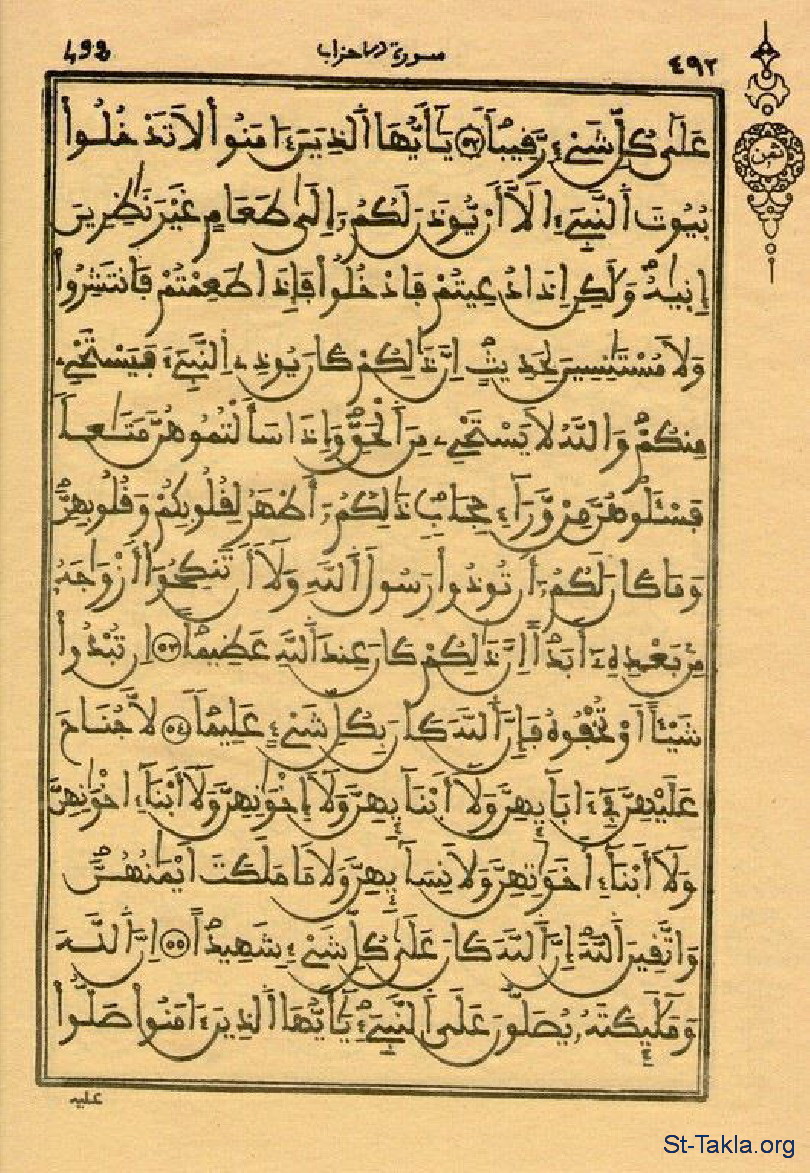 ٤٩٢ سورة الاحزاب 492
ثمن
عَلَىٰ كُلِّ شَےْءٖ رَّقِيباً ٥٢ يَٰٓأَيُّهَا اَ۬لذِينَ ءَامَنُواْ لَا تَدْخُلُواْ
بُيُوتَ اَ۬لنَّبِےٓءِ الَّآ أَنْ يُّوذَنَ لَكُمُۥٓ إِلَىٰ طَعَامٍ غَيْرَ نَٰظِرِينَ
إِنٜيٰهُ وَلَٰكِنِ اِذَا دُعِيتُمْ فَادْخُلُواْ فَإِذَا طَعِمْتُمْ فَانتَشِرُواْ
وَلَا مُسْتَٰنِسِينَ لِحَدِيثٍ اِنَّ ذَٰلِكُمْ كَانَ يُوذِے اِ۬لنَّبِےٓءَ فَيَسْتَحْيِۦ
مِنكُمْ وَاللَّهُ لَا يَسْتَحْيِۦ مِنَ اَ۬لْحَقِّ وَإِذَا سَأَلْتُمُوهُنَّ مَتَٰعاً
فَسْـَٔلُوهُنَّ مِنْ وَّرَآءِ حِجَابٍ ذَٰلِكُمُۥٓ أَطْهَرُ لِقُلُوبِكُمْ وَقُلُوبِهِنَّ
وَمَا كَانَ لَكُمُۥٓ أَن تُوذُواْ رَسُولَ اَ۬للَّهِ وَلَآ أَن تَنكِحُوٓاْ أَزْوَٰجَهُۥ
مِنۢ بَعْدِهِۦٓ أَبَداً اِنَّ ذَٰلِكُمْ كَانَ عِندَ اَ۬للَّهِ عَظِيماً ٥٣ اِن تُبْدُواْ
شَيْـٔاً اَوْ تُخْفُوهُ فَإِنَّ اَ۬للَّهَ كَانَ بِكُلِّ شَےْءٍ عَلِيماً ٥٤ لَّا جُنَاحَ
عَلَيْهِنَّ فِےٓ ءَابَآئِهِنَّ وَلَآ أَبْنَآئِهِنَّ وَلَآ إِخْوَٰنِهِنَّ وَلَآ أَبْنَآءِ اخْوَٰنِهِنَّ
وَلَآ أَبْنَآءِ اَخَوَٰتِهِنَّ وَلَا نِسَآئِهِنَّ وَلَا مَا مَلَكَتَ اَيْمَٰنُهُنَّ
وَاتَّقِينَ اَ۬للَّهَ إِنَّ اَ۬للَّهَ كَانَ عَلَىٰ كُلِّ شَےْءٖ شَهِيداً ٥٥ اِنَّ اَ۬للَّهَ
وَمَلَٰٓئِكَتَهُۥ يُصَلُّونَ عَلَى اَ۬لنَّبِےٓءِ يَٰٓأَيُّهَا اَ۬لذِينَ ءَامَنُواْ صَلُّواْ
عليه
St-Takla.org